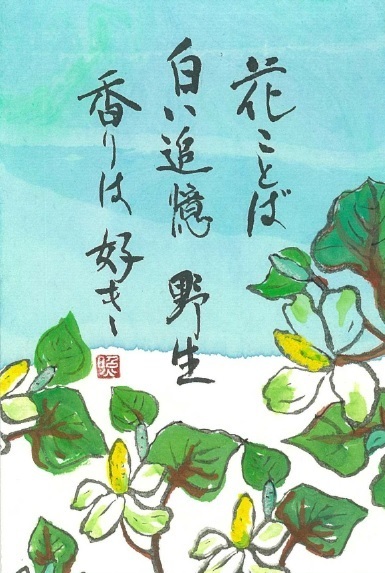 花ことば
白い追憶 野生
香りは 好き〜